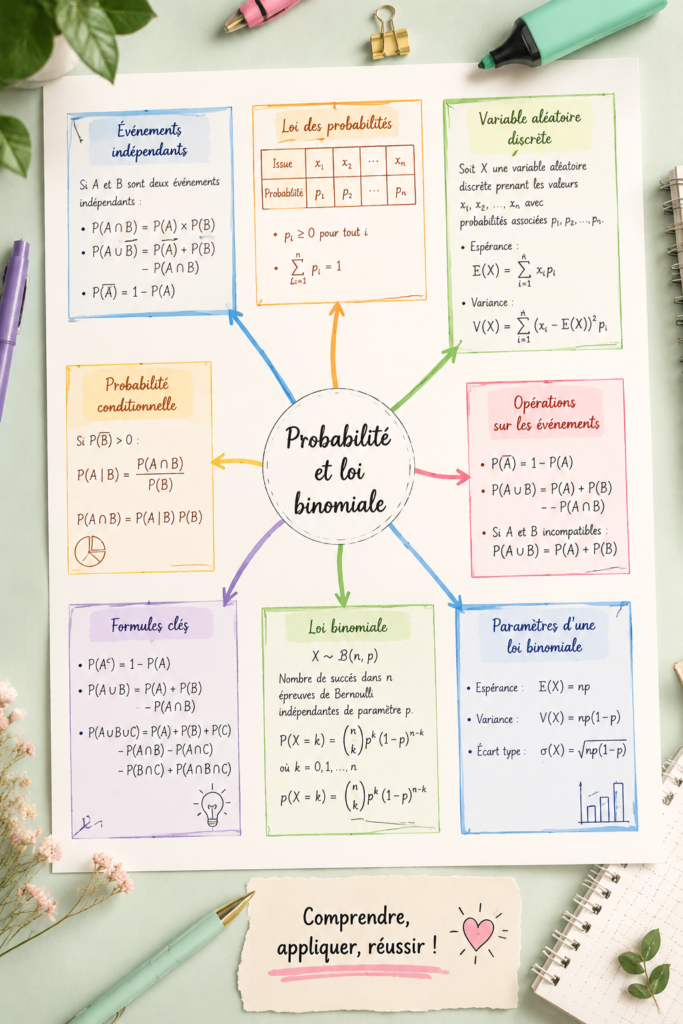 Événements
indépendants
Si A et B sont deux événements
indépendants :
• P(A ∩ B) = P(A) × P(B)
• P(A ∪ B̅) = P(A̅) + P(B)
− P(A ∩ B)
• P(A̅) = 1 − P(A)
Loi des probabilités
Issue x₁ x₂ ⋯ xₙ
Probabilité p₁ p₂ ⋯ pₙ
• pᵢ ≥ 0 pour tout i
• ∑ pᵢ = 1
Variable aléatoire
discrète
Soit X une variable aléatoire
discrète prenant les valeurs
x₁, x₂, …, xₙ avec
probabilités associées p₁, p₂, …, pₙ.
• Espérance :
E(X) = ∑ⁿᵢ₌₁ xᵢpᵢ
• Variance :
V(X) = ∑ⁿᵢ₌₁ (xᵢ − E(X))² pᵢ
Probabilité
conditionnelle
Si P(B̅) > 0 :
P(A | B) = P(A ∩ B) / P(B)
P(A ∩ B) = P(A | B) P(B)
Probabilité
et loi
binomiale
Opérations
sur les événements
• P(A̅) = 1 − P(A)
• P(A ∪ B) = P(A) + P(B)
−− P(A ∩ B)
• Si A et B incompatibles :
P(A ∪ B) = P(A) + P(B)
Formules clés
• P(Aᶜ) = 1 − P(A)
• P(A ∪ B) = P(A) + P(B)
− P(A ∩ B)
• P(A∪B∪C) = P(A) + P(B) + P(C)
− P(A∩B) − P(A∩C)
− P(B∩C) + P(A∩B∩C)
Loi binomiale
X ~ B(n, p)
Nombre de succés dans n
épreuves de Bernoulli
indépendantes de paramètre p.
P(X = k) = (n k) pᵏ (1 − p)ⁿ⁻ᵏ
où k = 0, 1, …, n
p(X = k) = (n k) pᵏ (1 − p)ⁿ⁻ᵏ
Paramètres d'une
loi binomiale
• Espérance : E(X) = np
• Variance : V(X) = np(1−p)
• Écart type : σ(X) = √np(1−p)
Comprendre,
appliquer, réussir !